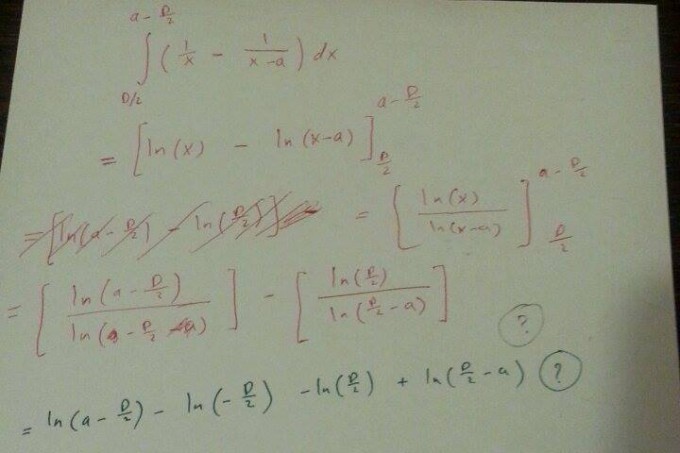 ∫_{D/2}^{a - D/2} ( 1/x - 1/(x-a) ) dx
= [ ln(x) - ln(x-a) ]_{D/2}^{a - D/2}
= [ ln(a - D/2) - ln(D/2) ] = [ ln(x) / ln(x-a) ]_{D/2}^{a - D/2}
= [ ln(a - D/2) / ln(a - D/2 - a) ] - [ ln(D/2) / ln(D/2 - a) ]
?
= ln(a - D/2) - ln(-D/2) - ln(D/2) + ln(D/2 - a) ?